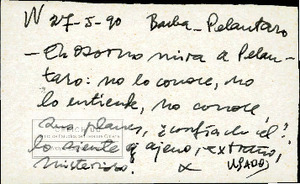 N 27-5-90 Barba-Pelantaro
- En Osorno mira a Pelan-
taro: no lo conoce, no
lo entiende, no conoce
sus planes, ¿confía en él?
lo siente ajeno, extraño,
misterioso. USADO